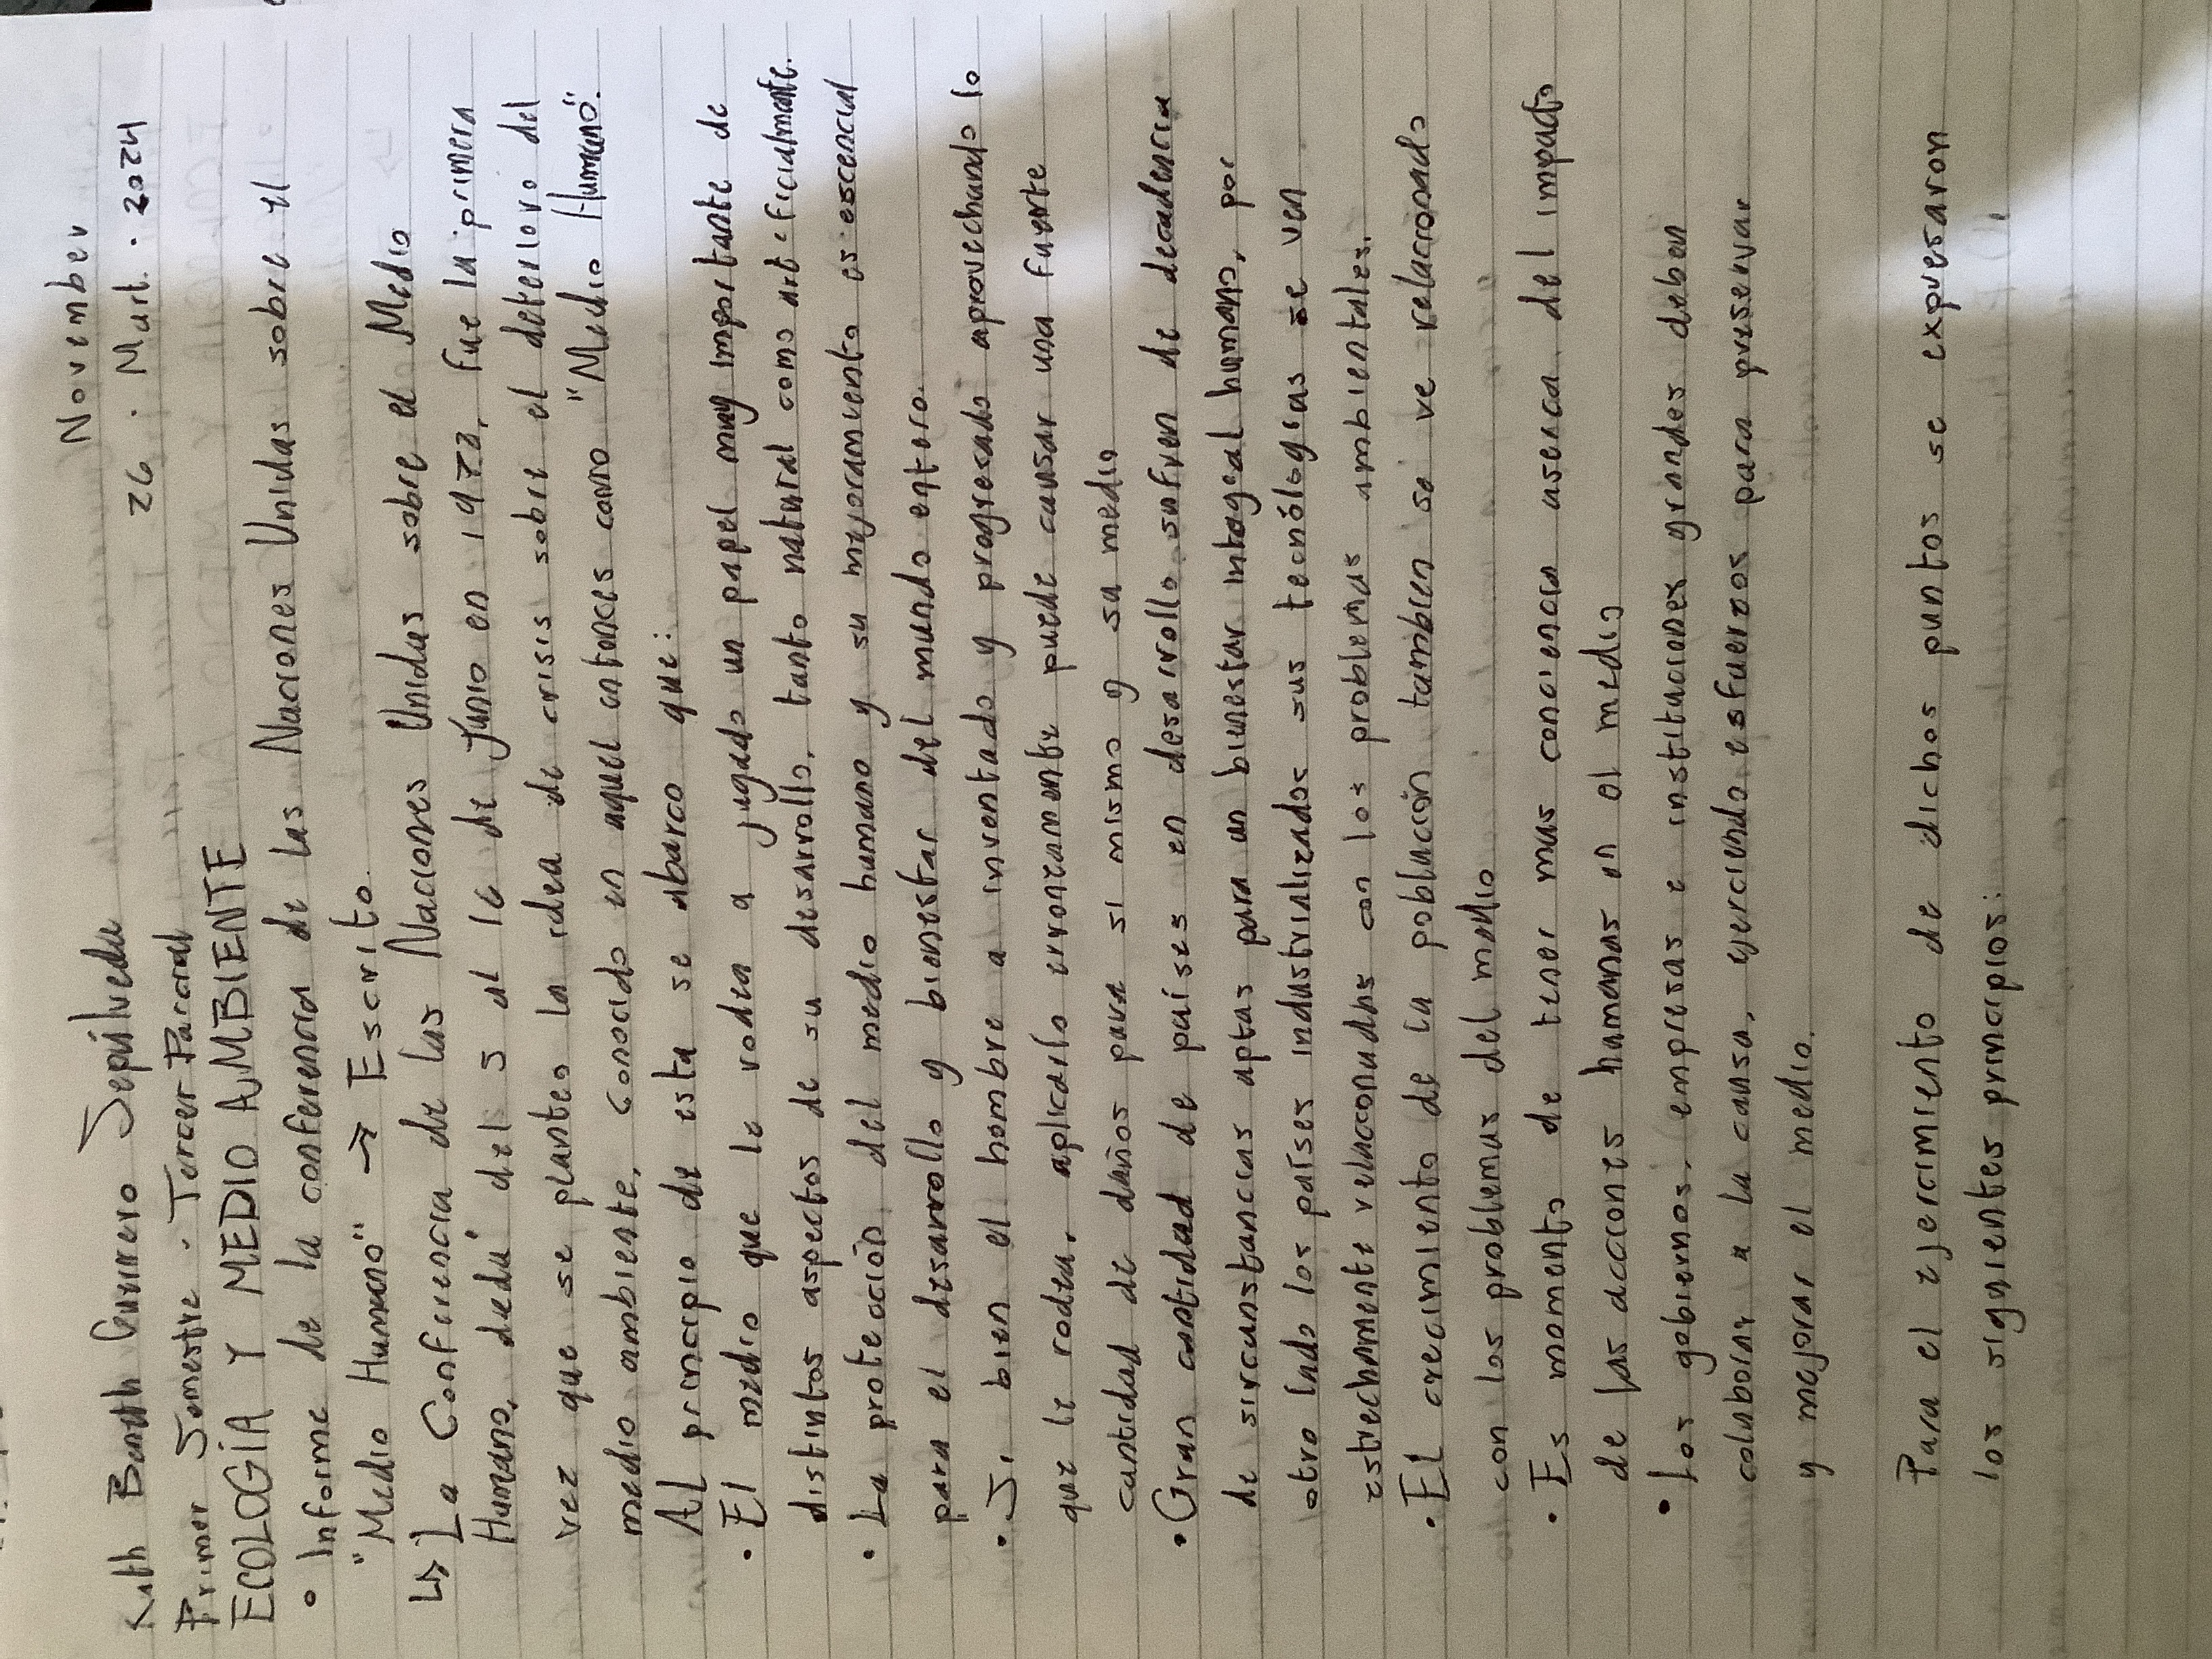 November
Ruth Guerrero Sepúlveda 26 . Mart. . 2024
Primer Semestre . Tercer Parcial
ECOLOGÍA Y MEDIO AMBIENTE
• Informe de la conferencia de las Naciones Unidas sobre el
"Medio Humano" → Escrito
↳ La Conferencia de las Naciones Unidas sobre el Medio
Humano, dada del 5 al 16 de Junio en 1972, fue la primera
vez que se planteo la idea de crisis sobre el deterioro del
medio ambiente, conocido en aquel entonces como "Medio Humano".
Al principio de esta se abarco que:
• El medio que le rodea a jugado un papel muy importante de
distintos aspectos de su desarrollo, tanto natural como artificialmente.
• La protección del medio humano y su mejoramiento es escencial
para el desarrollo y bienestar del mundo entero.
• Si bien el hombre a inventado y progresado aprovechando lo
que le rodea, aplicarlo erroneamente puede causar una fuerte
cantidad de daños para si mismo y su medio
• Gran cantidad de países en desarrollo sufren de decadencia
de sircunstancias aptas para un bienestar integral humano, por
otro lado los países industrializados sus tecnólogías se ven
estrechamente relacionadas con los problemas ambientales.
• El crecimiento de la población tambien se ve relacionado
con los problemas del medio
• Es momento de tener mas conciencia aserca del impacto
de las acciones humanas en el medio
• Los gobiernos, empresas e instituciones grandes deben
colaborar a la causa, ejerciendo esfuerzos para preservar
y mejorar el medio.
Para el ejercimiento de dichos puntos se expresaron
los siguientes principios: